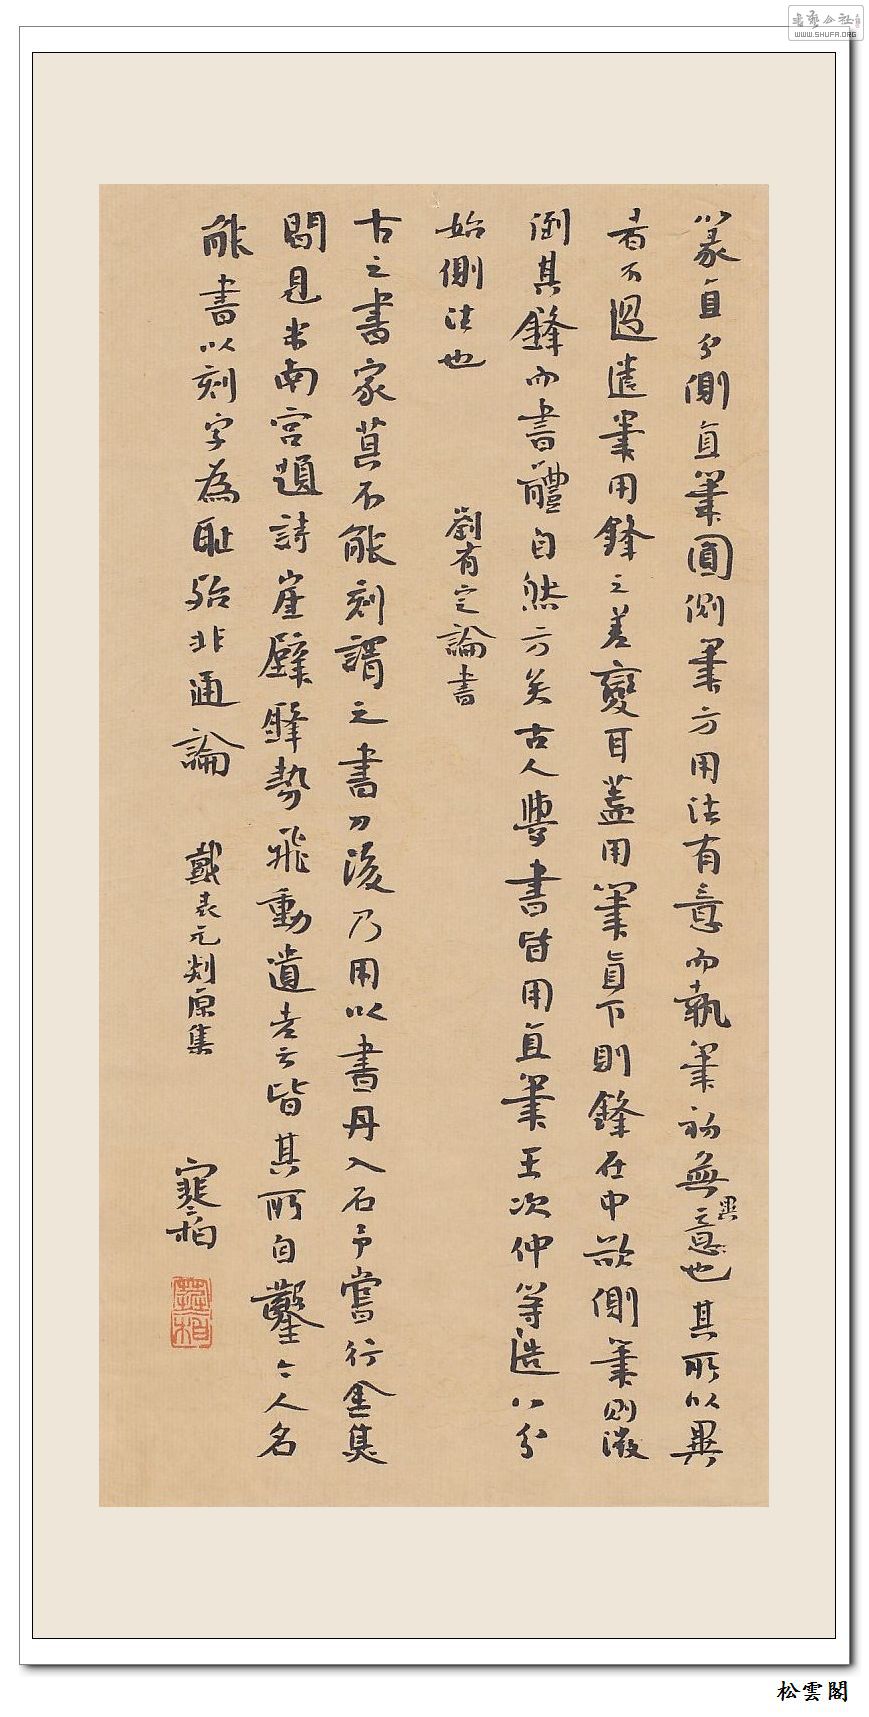 篆直分側直筆圓側筆方用法有意而執筆初無異意也其所以異
者不過遣筆用鋒之差變耳蓋用筆直下則鋒在中欲側筆則微
倒其鋒而書體自然方矣古人學書皆用直筆王次仲等造八分
始側法也
劉有定論書
古之書家莫不能刻謂之書刀後乃用以書丹入石予嘗行金焦
間見米南宮題詩崖壁鋒勢飛動遺老云皆其所自鑿今人名
能書以刻字為恥殆非通論
戴表元剡原集
寒柏
寒柏
松雲閣
WWW.SHUFA.ORG